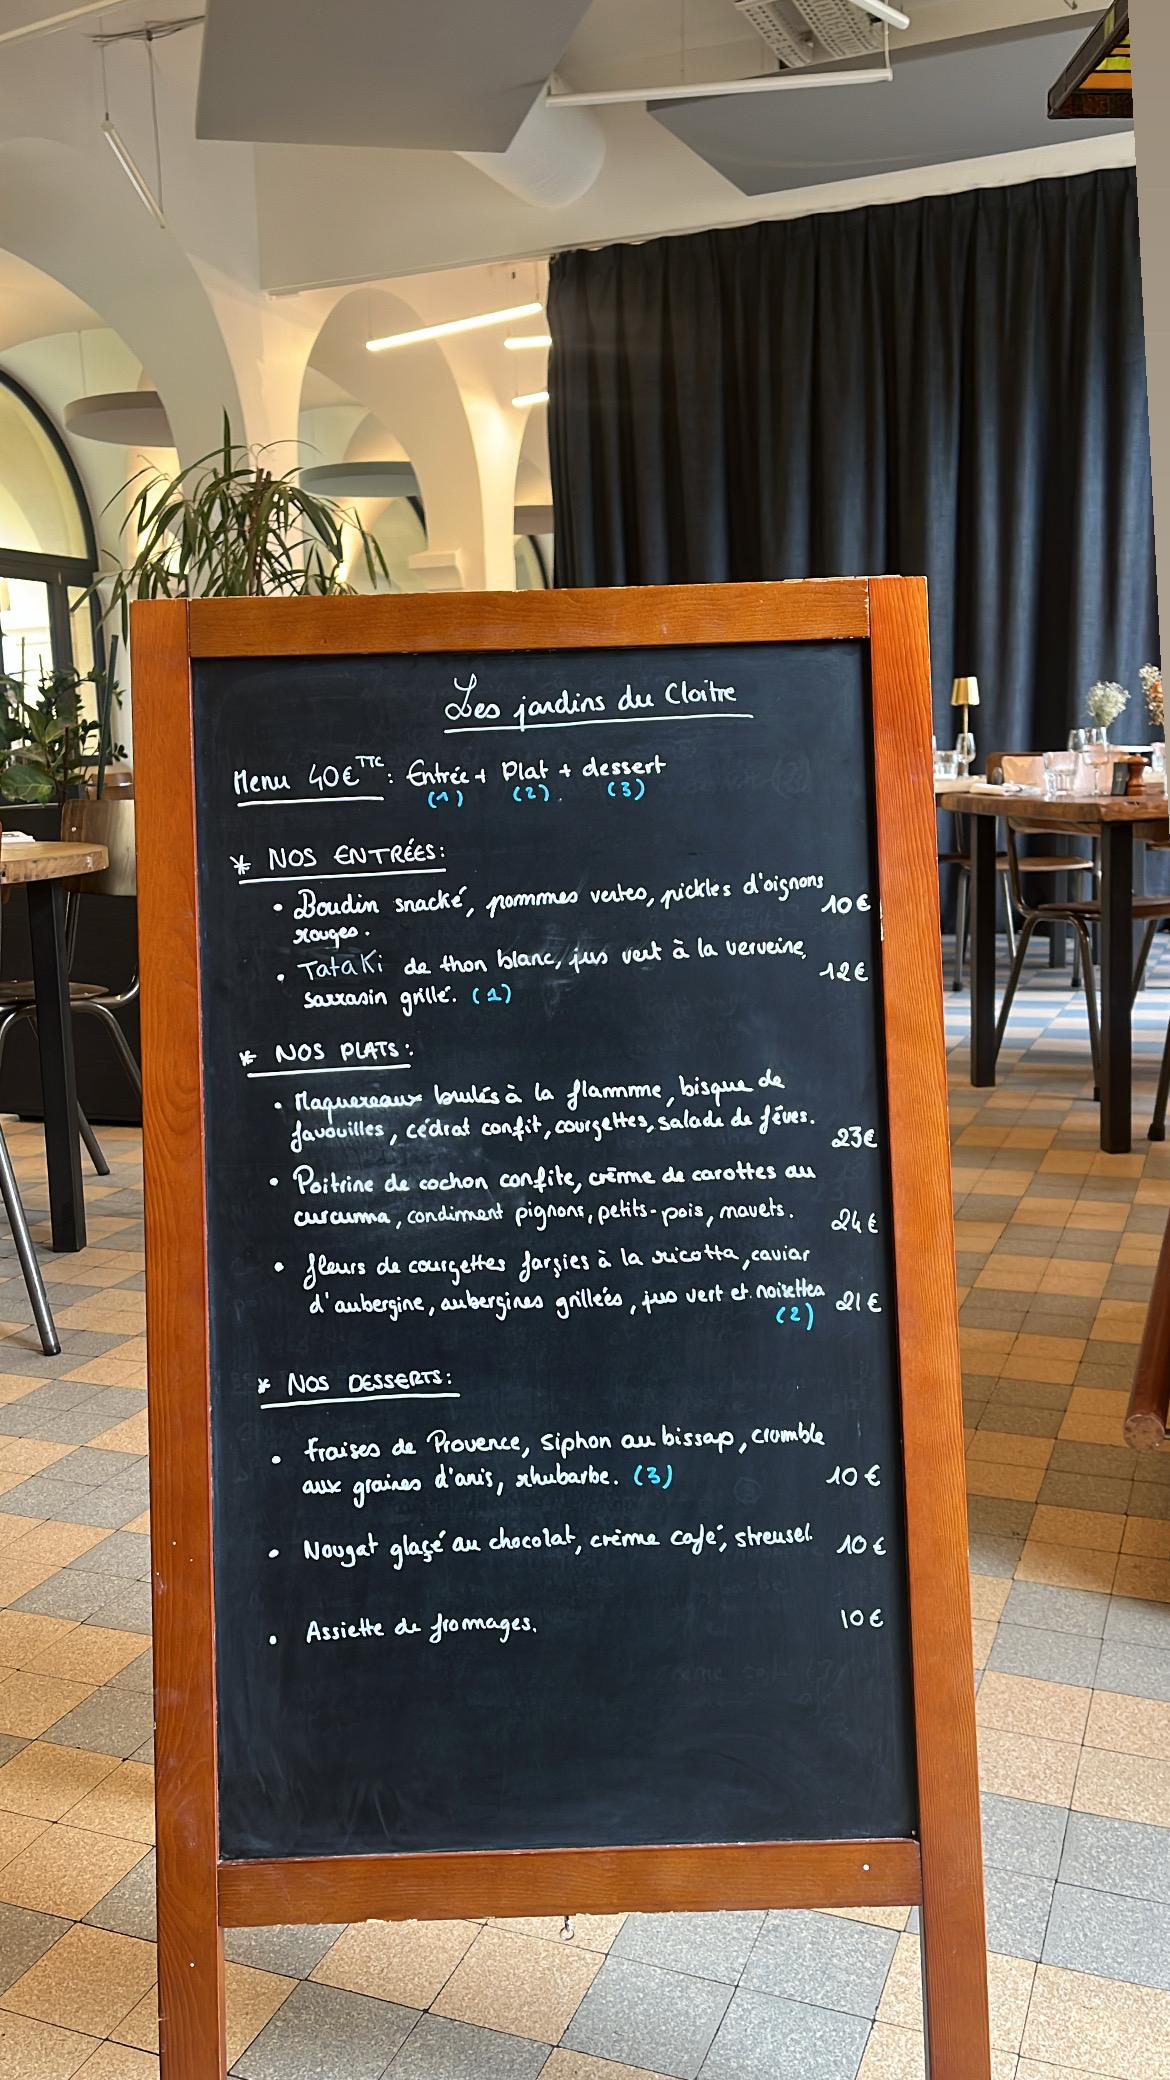 Les jardins du Cloitre
Menu 40€ TTC : Entrée + Plat + dessert
(1) (2) (3)
* NOS ENTRÉES :
• Boudin snacké, pommes vertes, pickles d'oignons
rouges. 10€
• Tataki de thon blanc, jus vert à la verveine,
sarrasin grillé. (1) 12€
* NOS PLATS :
• Maquereaux brulés à la flammme, bisque de
favouilles, cédrat confit, courgettes, salade de fêves. 23€
• Poitrine de cochon confite, crème de carottes au
curcuma, condiment pignons, petits-pois, navets. 24€
• fleurs de courgettes farçies à la ricotta, caviar
d'aubergine, aubergines grilleés, jus vert et noisettes 21€
(2)
* NOS DESSERTS :
• Fraises de Provence, Siphon au bissap, crumble
aux graines d'anis, rhubarbe. (3) 10€
• Nougat glaçé au chocolat, crème café, streusel. 10€
• Assiette de fromages. 10€